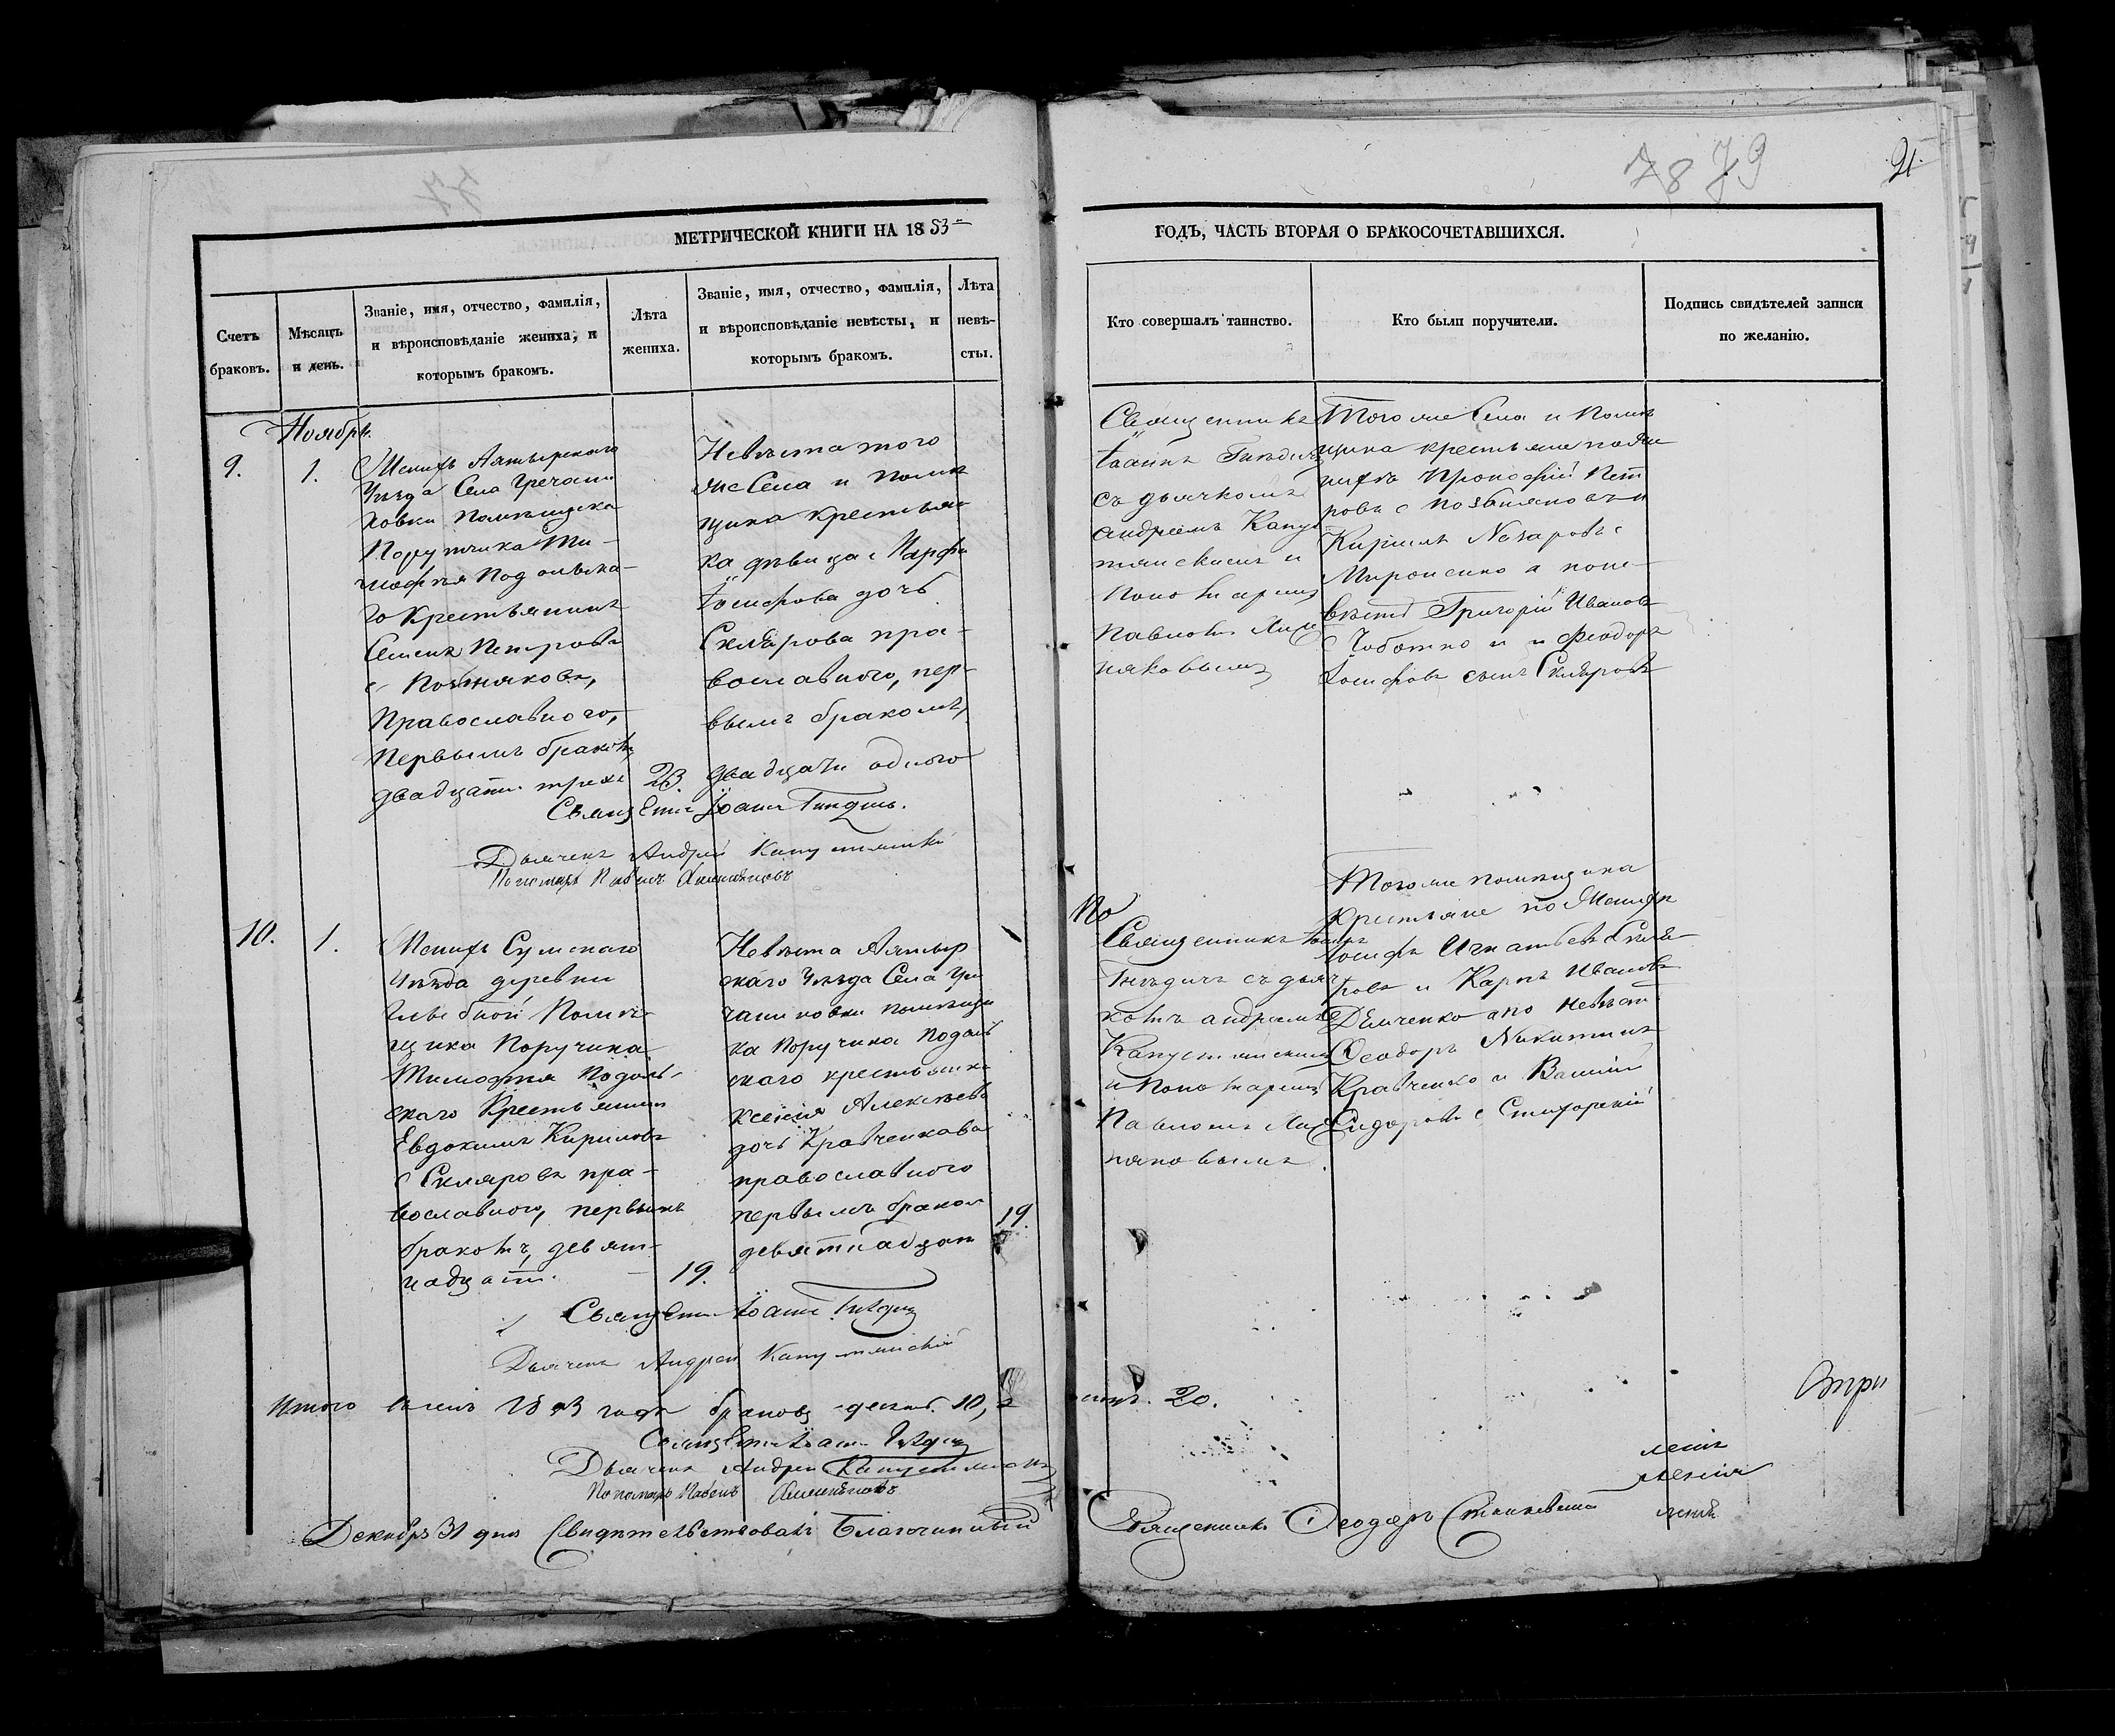 78 79
91.
МЕТРИЧЕСКОЙ КНИГИ НА 1853
ГОДЪ, ЧАСТЬ ВТОРАЯ О БРАКОСОЧЕТАВШИХСЯ.
Счетъ
браковъ.
Мѣсяцъ
и день.
Званіе, имя, отчество, фамилія,
и вѣроисповѣданіе жениха, и
которымъ бракомъ.
Лѣта
жениха.
Званіе, имя, отчество, фамилія,
и вѣроисповѣданіе невѣсты, и
которымъ бракомъ.
Лѣта
невѣ-
сты.
Кто совершалъ таинство.
Кто были поручители.
Подпись свидѣтелей записи
по желанію.
Ноябрь.
9.
1.
Женихъ Ахтырскаго
Уѣзда Села Гречани
ковки Помѣщика
Поручика Ти-
моѳѣя Подольска-
го Крестьянинъ
Семенъ Петровъ
Позняковъ,
Православнаго,
Первымъ бракомъ,
двадцати трехъ
23
Невѣста того
же Села и Помѣ
щика крестьян
ка дѣвица
Іосифова дочь
Склярова пра-
вославного, пер-
вымъ бракомъ,
двадцати одного
Священникъ
Іоаннъ Гнѣдичъ
съ дьячкомъ
андреемъ Капус
тянскимъ и
Пономаремъ
Павломъ
Того же Села и Помѣ
щика крестьяне по же
нихѣ Прокофій Пет
ровъ Позняковъ и
Кирилъ Назаровъ
Мироненко а по не
вѣстѣ Григорій Ивановъ
Чоботко и Феодоръ
Іосифовъ сынъ Скляровъ
Священ. Іоаннъ Гнѣдичъ.
Дьячекъ Андрей Капустянскій
Пономарь Павелъ
10.
1.
Женихъ Сумскаго
Уѣзда деревни
Помѣ-
щика Поручика
Тимоѳѣя Подоль-
скаго Крестьянинъ
Евдокимъ Кириловъ
Скляровъ пра-
вославного, первымъ
бракомъ, девят-
надцати.
19.
Невѣста Ахтыр
скаго Уѣзда Села Гре
чаниковки помѣщи
ка Поручика Подоль
скаго крестьянка
Ксенія Алексѣева
дочь Кравченкова
православного
первымъ бракомъ
девятнадцати
19.
Священникъ Іоаннъ
Гнѣдичъ съ дьяч
комъ андреемъ
Капустянскимъ
и Пономаремъ
Павломъ
Того же помѣщика
Крестьяне по Женихѣ
Іосифъ Игнатьевъ Скля
ровъ и Карпъ Ивановъ
Демченко а по невѣстѣ
Феодоръ Никитинъ
Кравченко и Василій
Сидоровъ
Священ. Іоаннъ Гнѣдичъ
Дьячекъ Андрей Капустянскій
Итого въ семъ 1853 годѣ браковъ десять 10,
20.
Священ. Іоаннъ Гнѣдичъ
Дьячекъ Андрей Капустянскій
Пономарь Павелъ
Декабрь 31 дня Свидѣтельствовалъ Благочинный
Священникъ Феодоръ